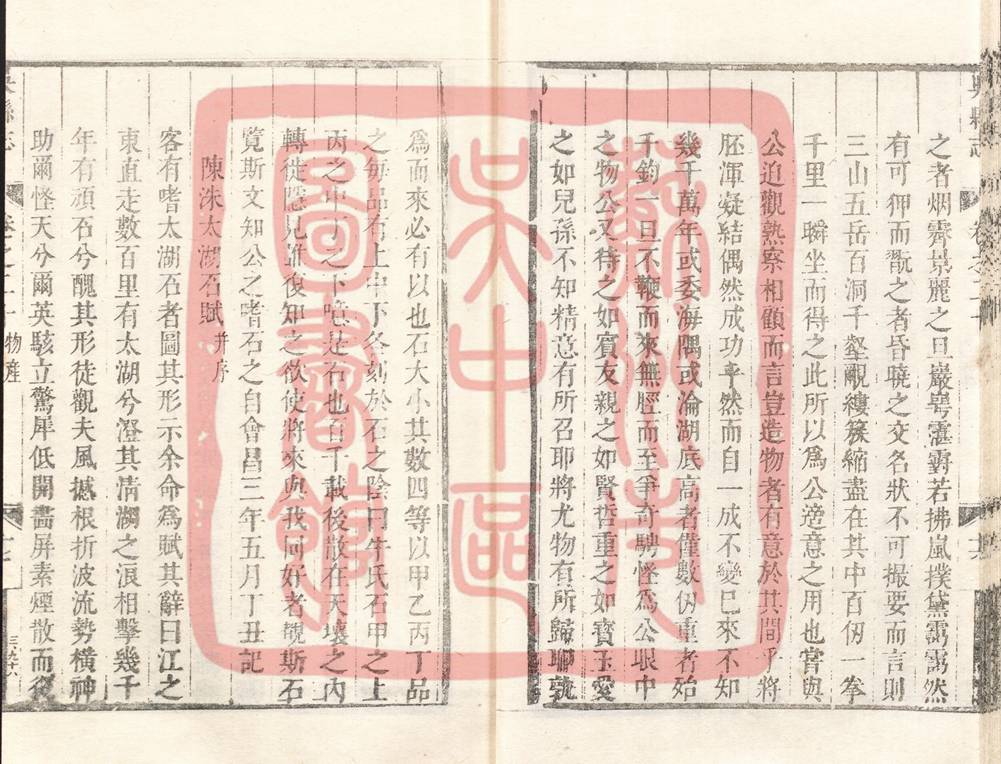 之者烟霽景麗之旦巖㟧霮䨴若拂嵐撲黛靄靄然
有可狎而翫之者昏曉之交名狀不可撮要而言則
三山五岳百洞千壑覼縷簇縮盡在其中百仞一拳
千里一瞬坐而得之此所以為公適意之用也嘗與
公迫觀熟察相顧而言豈造物者有意於其間乎將
胚渾凝結偶然成功乎然而自一成不變已來不知
幾千萬年或委海隅或淪湖底高者僅數仞重者殆
千鈞一旦不鞭而來無脛而至爭奇騁怪為公眼中
之物公又待之如賓友親之如賢哲重之如寶玉愛
之如兒孫不知精意有所召耶將尤物有所歸耶孰
為而來必有以也石大小其數四等以甲乙丙丁品
之每品有上中下各刻於石之陰曰牛氏石甲之上
丙之中丁之下噫是石也百千載後散在天壤之內
轉徙隱見誰復知之欲使將來與我同好者覩斯石
覽斯文知公之嗜石之自會昌三年五月丁丑記
陳洙太湖石賦 并序
客有嗜太湖石者圖其形示余命為賦其辭曰江之
東直走數百里有太湖兮澄其清瀾之浪相擊幾千
年有頑石兮醜其形徒觀夫風撼根折波流勢橫神
助爾怪天兮爾英駭立驚犀低開畫屏素煙散而後
物產
蘇州市
吳中區
圖書館